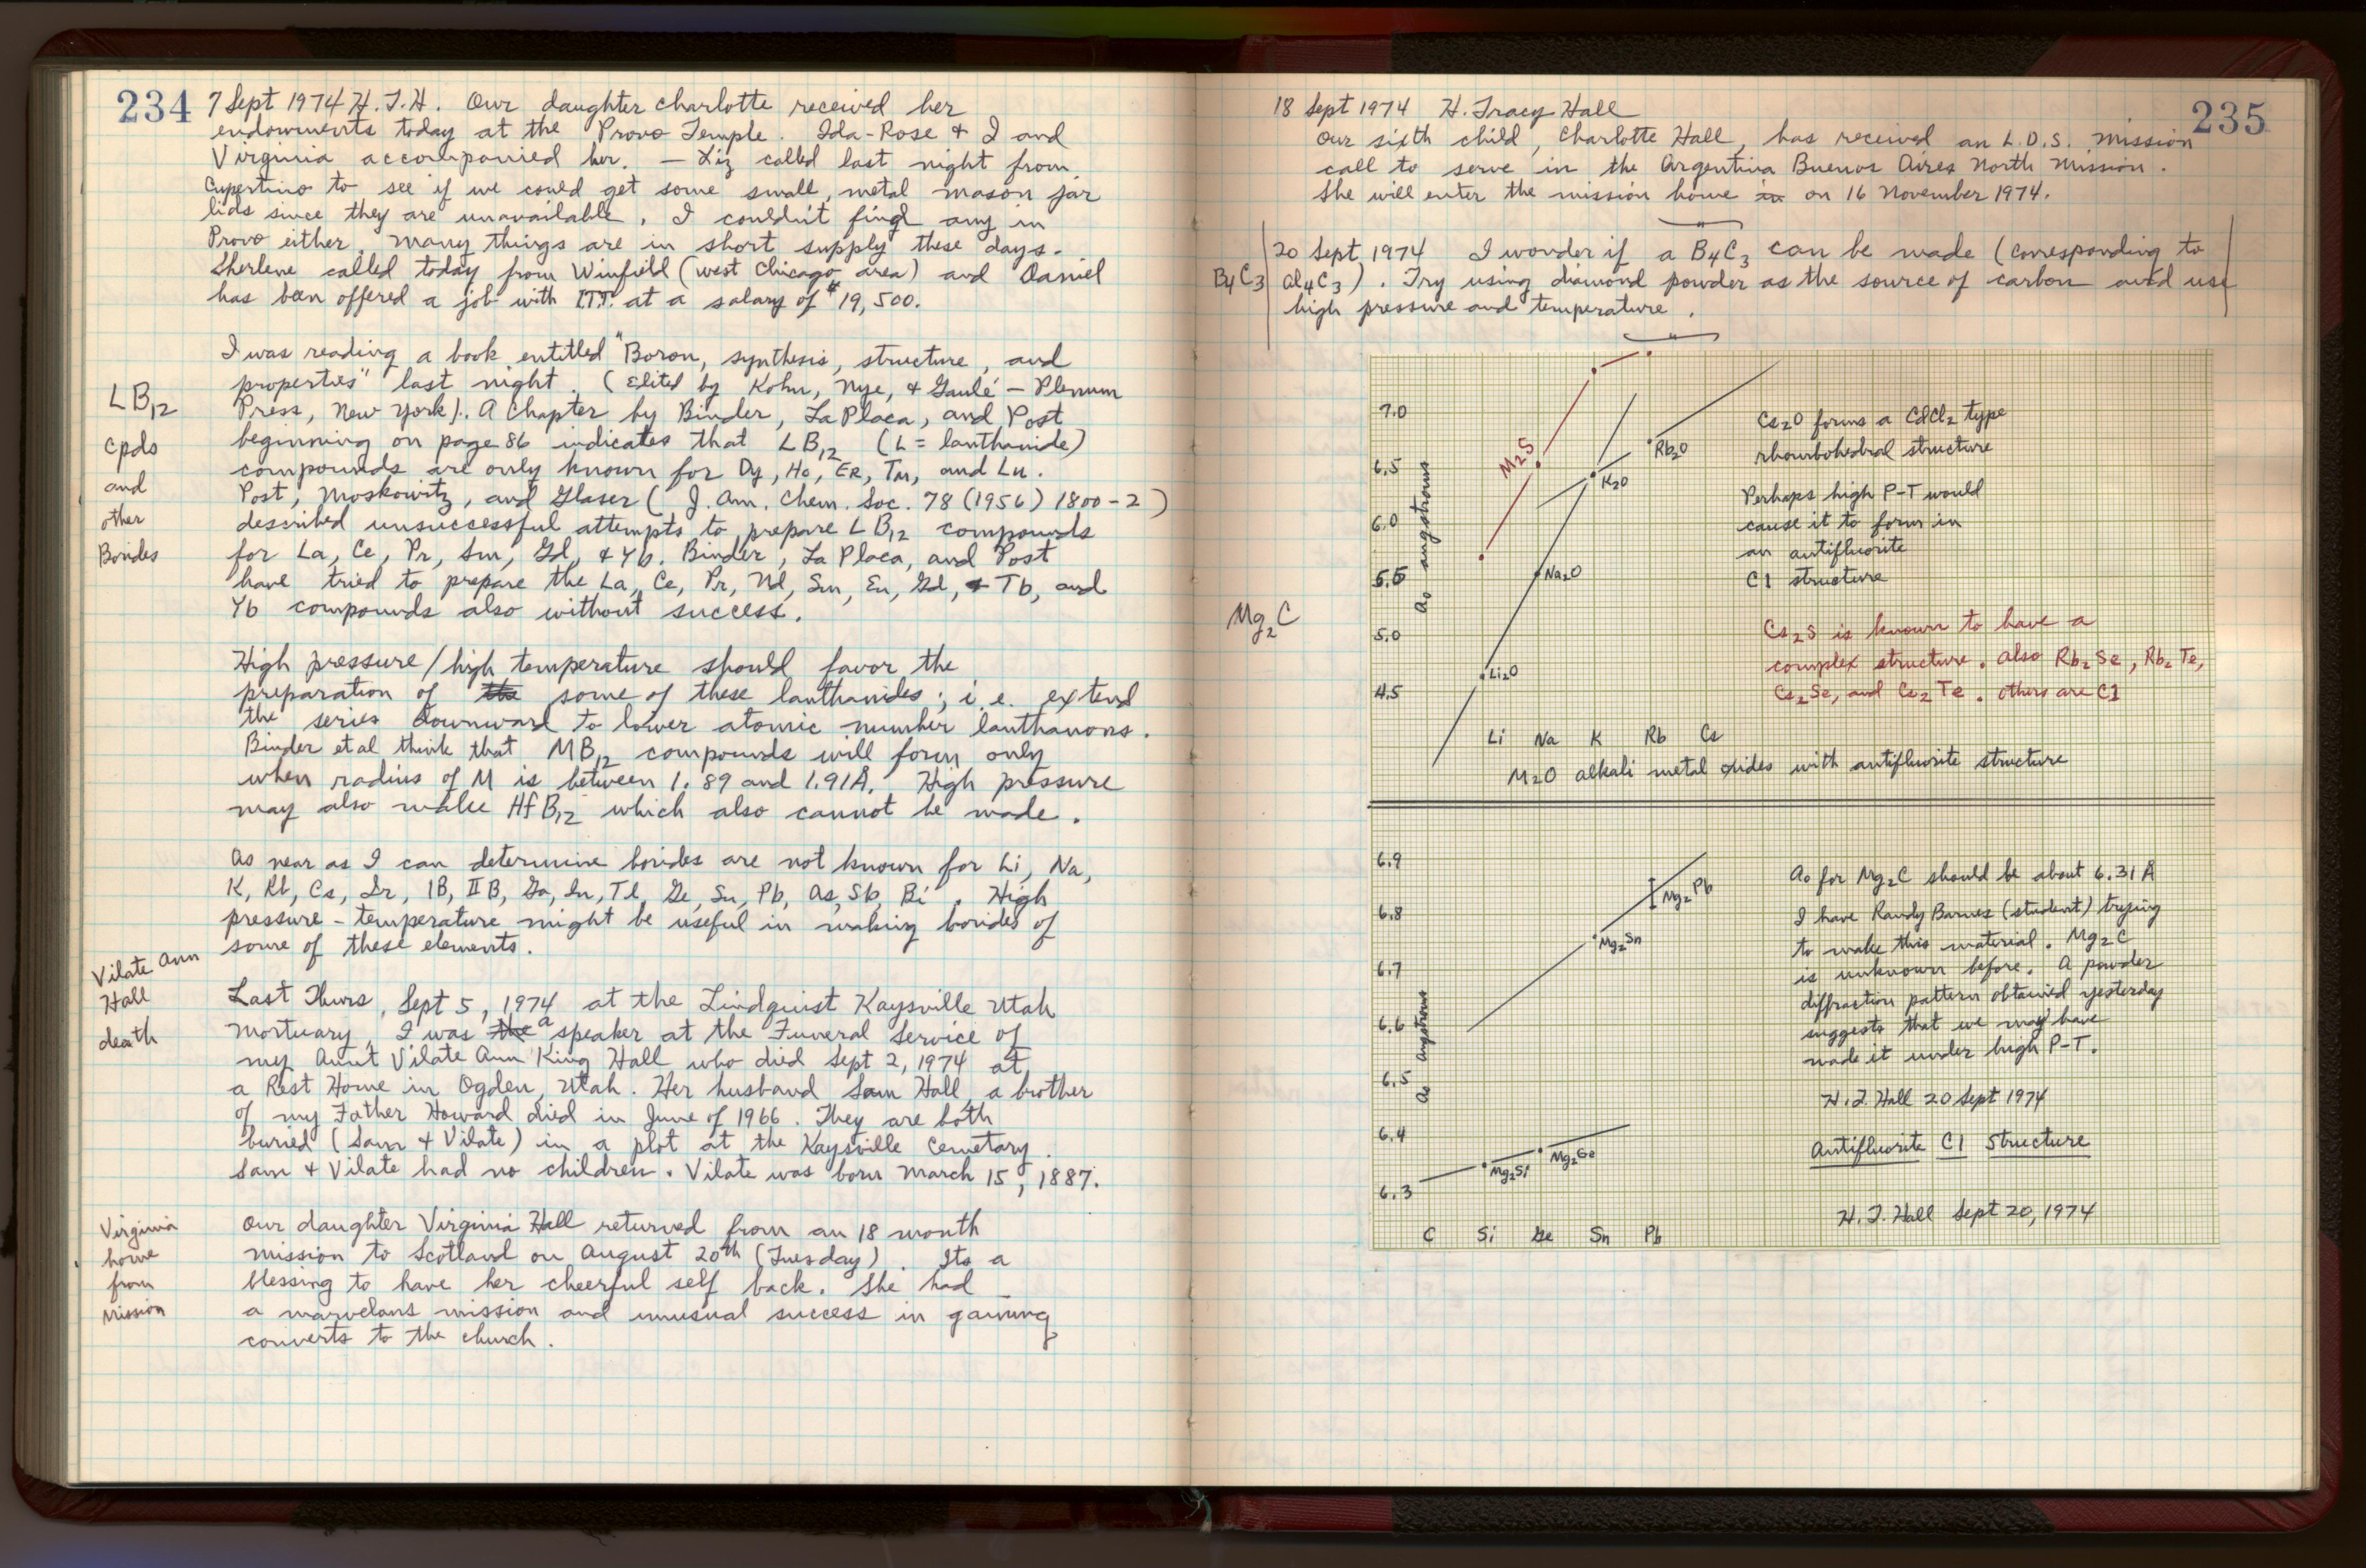 234
7 Sept 1974 H.T.H. Our daughter Charlotte received her
endowments today at the Provo Temple. Ida-Rose & I and
Virginia accompanied her. — Liz called last night from
Cupertino to see if we could get some small, metal mason jar
lids since they are unavailable. I couldn't find any in
Provo either. Many things are in short supply these days.
Sherlene called today from Winfield (west Chicago area) and Daniel
has been offered a job with ITT. at a salary of $19,500.
I was reading a book entitled "Boron, synthesis, structure, and
properties" last night. (Edited by Kohn, Nye, & Gaulé — Plenum
LB12
Press, New York). A Chapter by Binder, La Placa, and Post
cpds
beginning on page 86 indicates that LB12 (L = lanthanide)
compounds are only known for Dy, Ho, Er, Tm, and Lu.
and
Post, Moskowitz, and Glaser (J. Am. Chem. Soc. 78 (1956) 1800-2)
other
described unsuccessful attempts to prepare LB12 compounds
Borides
for La, Ce, Pr, Sm, Gd, & Yb. Binder, La Placa, and Post
have tried to prepare the La, Ce, Pr, Nd, Sm, Eu, Gd, & Tb, and
Yb compounds also without success.
High pressure/high temperature should favor the
preparation of the some of these lanthanides; i.e. extend
the series downward to lower atomic number lanthanons.
Binder et al think that MB12 compounds will form only
when radius of M is between 1.89 and 1.91Å. High pressure
may also make HfB12 which also cannot be made.
As near as I can determine borides are not known for Li, Na,
K, Rb, Cs, Ir, IB, IIB, Ga, In, Tl, Ge, Sn, Pb, As, Sb, Bi. High
pressure-temperature might be useful in making borides of
some of these elements.
Vilate Ann
Hall
death
Last Thurs, Sept 5, 1974 at the Lindquist Kaysville Utah
Mortuary, I was the a speaker at the Funeral Service of
my Aunt Vilate Ann King Hall who died Sept 2, 1974 at
a Rest Home in Ogden, Utah. Her husband Sam Hall, a brother
of my Father Howard died in June of 1966. They are both
buried (Sam & Vilate) in a plot at the Kaysville Cemetary.
Sam & Vilate had no children. Vilate was born March 15, 1887.
Virginia
home
from
Mission
Our daughter Virginia Hall returned from an 18 month
mission to Scotland on August 20th (Tuesday). Its a
blessing to have her cheerful self back. She had
a marvelous mission and unusual success in gaining
converts to the church.
235
18 Sept 1974 H. Tracy Hall
Our sixth child, Charlotte Hall, has received an L.D.S. mission
call to serve in the Argentina Buenos Aires North Mission.
She will enter the mission home in on 16 November 1974.
20 Sept 1974 I wonder if a B4C3 can be made (corresponding to
B4C3
Al4C3). Try using diamond powder as the source of carbon and use
high pressure and temperature.
7.0
6.5
6.0
5.5
5.0
4.5
Ao angstroms
M2S
Rb2O
K2O
Na2O
Li2O
Cs2O forms a CdCl2 type
rhombohedral structure
Perhaps high P-T would
cause it to form in
an antifluorite
C1 structure
Mg2C
Cs2S is known to have a
complex structure. Also Rb2Se, Rb2Te,
Cs2Se, and Cs2Te. Others are C1
Li Na K Rb Cs
M2O alkali metal oxides with antifluorite structure
6.9
6.8
6.7
6.6
6.5
6.4
6.3
Ao angstroms
Mg2Pb
Mg2Sn
Mg2Si
Mg2Ge
C Si Ge Sn Pb
Ao for Mg2C should be about 6.31Å
I have Randy Barnes (student) trying
to make this material. Mg2C
is unknown before. A powder
diffraction pattern obtained yesterday
suggests that we may have
made it under high P-T.
H.T. Hall 20 Sept 1974
Antifluorite C1 Structure
H.T. Hall Sept 20, 1974